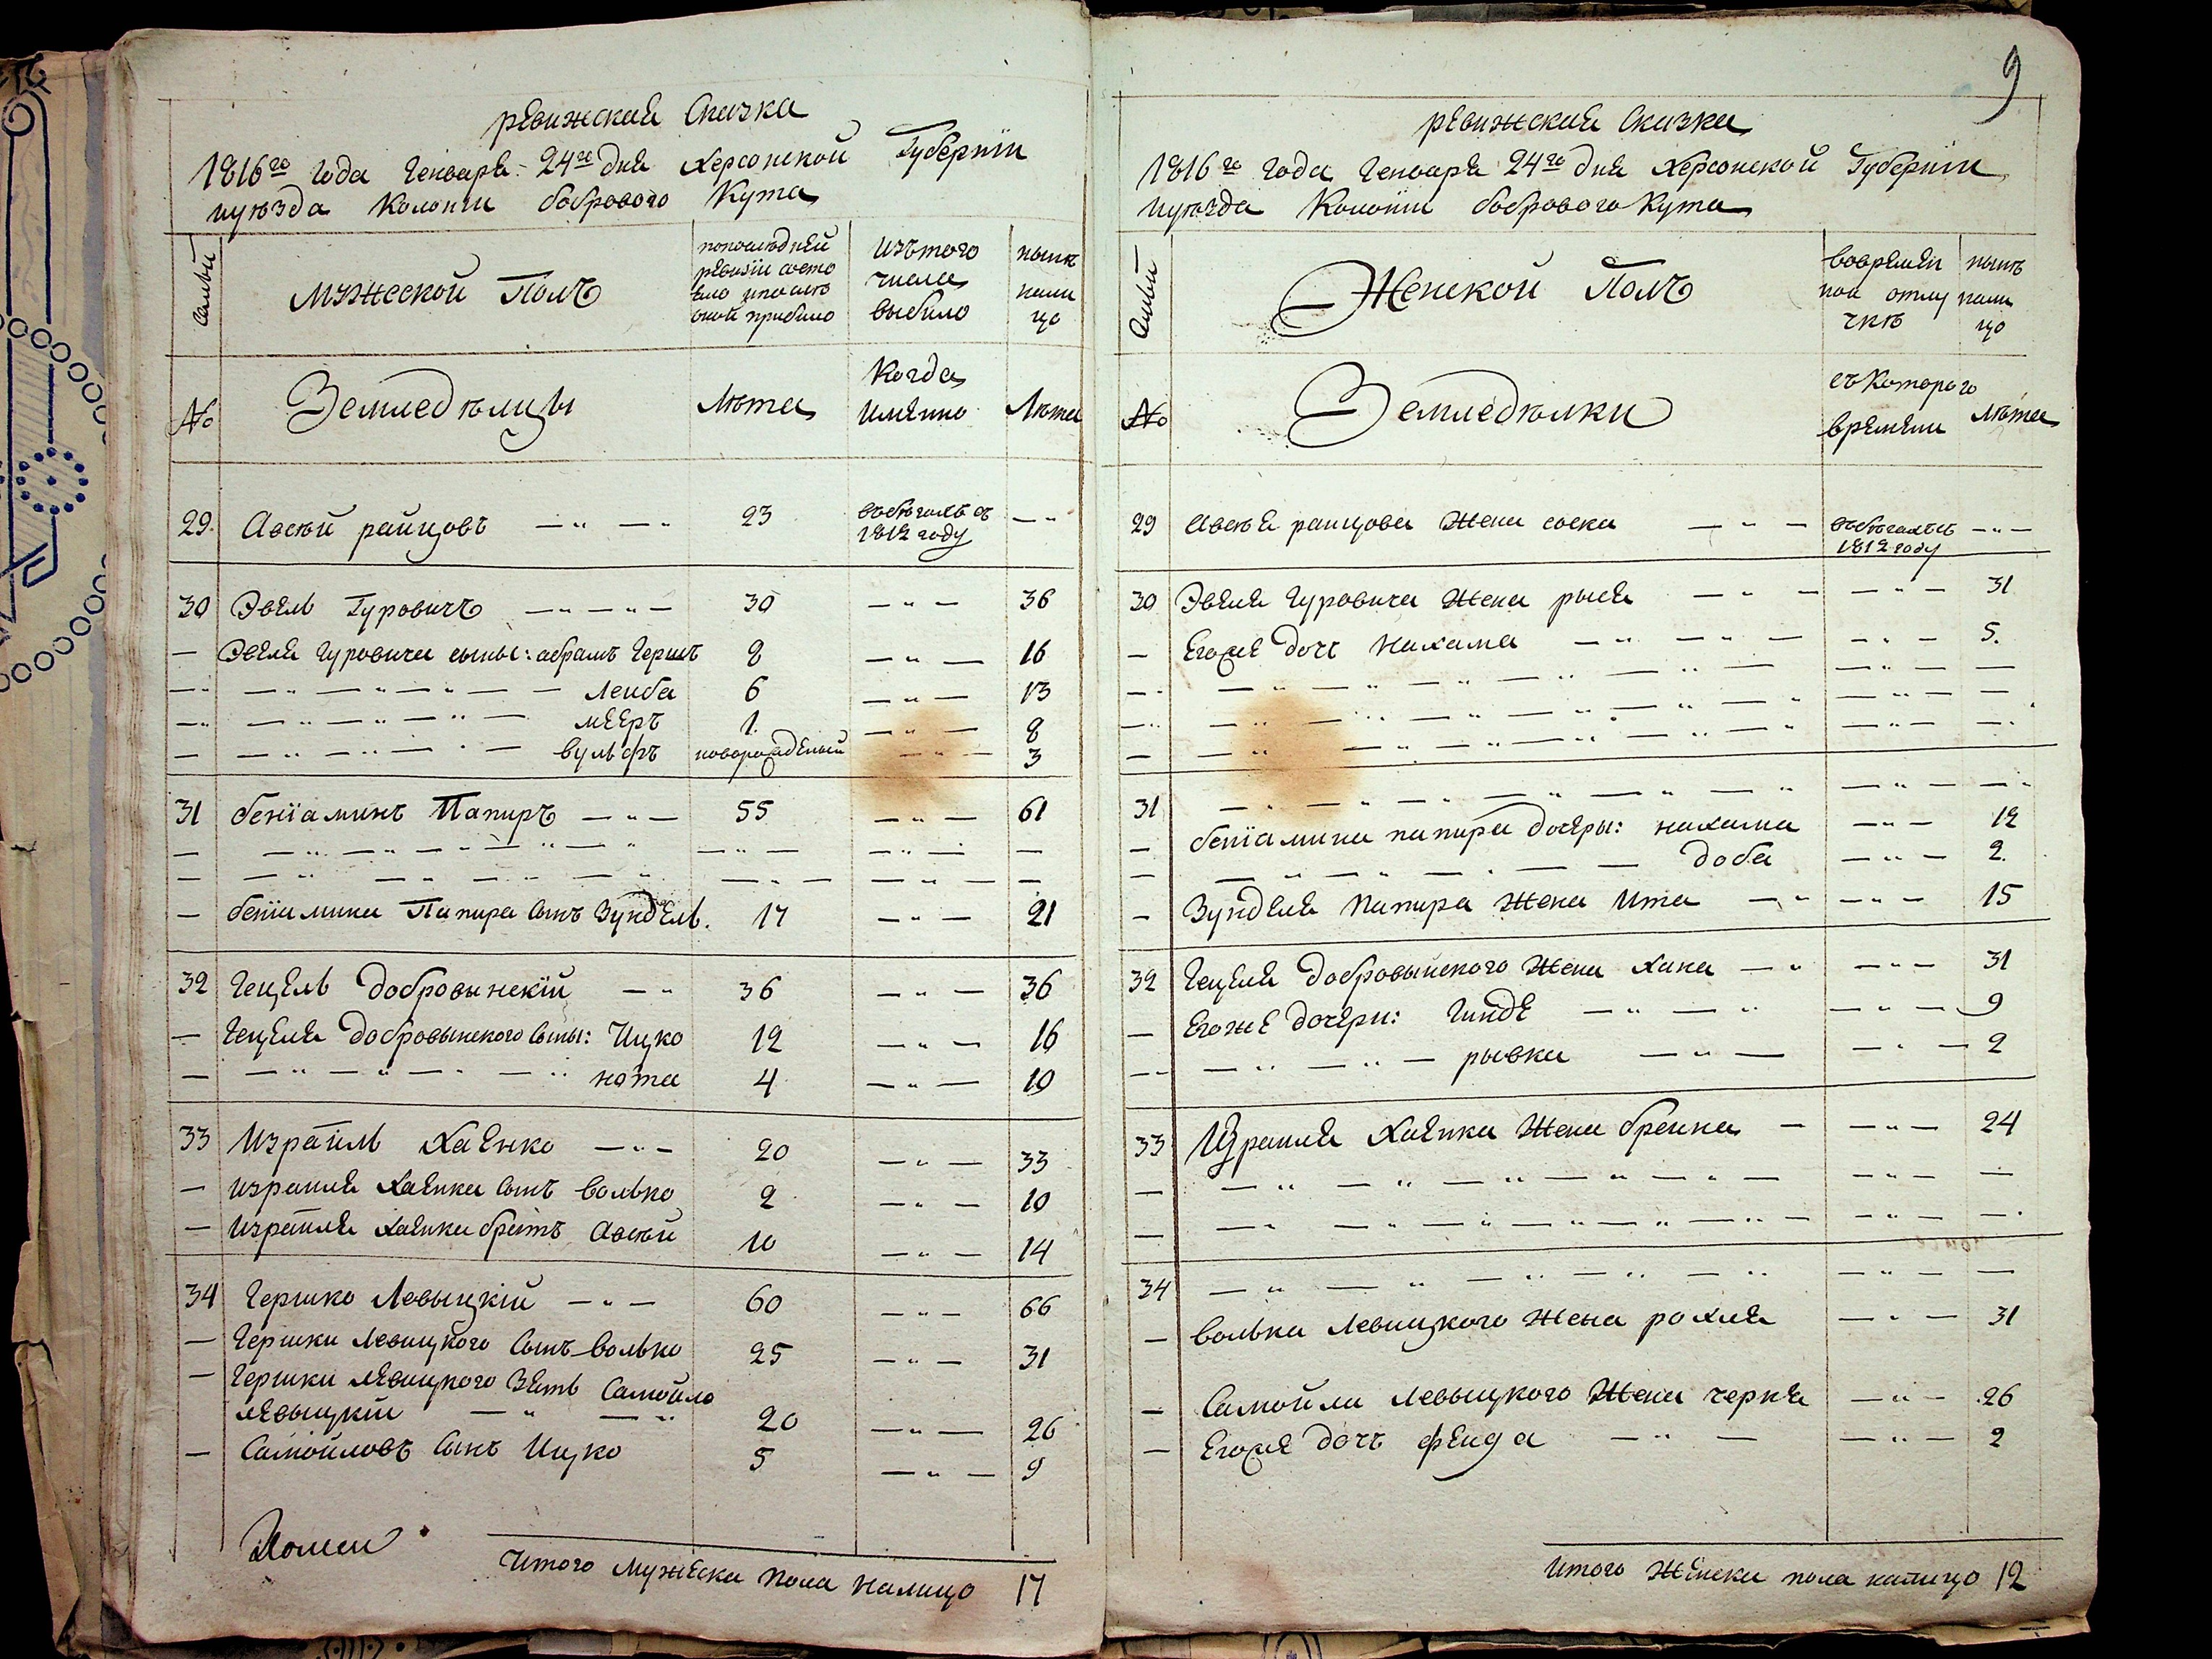 ревижская Сказка
1816го года Генваря 24го дня Херсонской Губернїи
иуѣзда Колонїи боброваго Кута
Семьи
Мужеской Полъ
попослѣдней
ревизїи состо
яло ипослѣ
оной прибыло
изътого
числа
выбыло
нынѣ
нали
цо
№
Земледѣлцы
Лѣта
Когда
имянно
Лѣта
29. Авсѣй райцовъ — „ — „ 23 1812 году — „
30 Эвель Гуровичъ — „ — „ — 30 — „ — 36
— Эвеля Гуровича сыны: абрамъ Гершъ 8 — „ — 16
— „ — „ — „ — „ — — лейба 6 — „ — 13
— „ — „ — „ — „ — мееръ 1. — „ — 8
— — „ — „ — „ — вульфъ новорожденый — „ — 3
31 бенїаминъ Папиръ — „ — 55 — „ — 61
— — „ — „ — „ — „ — „ — „ — — „ — —
— — „ — „ — „ — „ — „ — — „ — —
— бенїамина Папира Сынъ Зундель. 17 — „ — 21
32 Гецель Добровынскїй — „ 36 — „ — 36
— Гецеля Добровынского Сыны: Ицко 12 — „ — 16
— — „ — „ — „ — „ нота 4 — „ — 10
33 Израиль Хаенко — „ — 20 — „ — 33
— израиля Хаенка Сынъ Волько 2 — „ — 10
— израиля Хаенка братъ Авсѣй 10 — „ — 14
34 Гершко Левыцкїй — „ — 60 — „ — 66
— Гершки Левицкого Сынъ Волько 25 — „ — 31
— Гершки левицкого Зять Самойло
левыцкїй — „ — „ 20 — „ — 26
— Самойловъ Сынъ Ицко 5 — „ — 9
Итого Мужеска Пола налицо 17
9
ревижская Сказка
1816го года Генваря 24го дня Херсонской Губернїи
иуѣзда Колонїи боброваго Кута
Семьи
Женской Полъ
вовремен
ной отлу
чкѣ
нынѣ
нали
цо
№
Земледѣлки
съКотораго
времени
лѣта
29 Авсѣя райцова Жена соска — „ — 1812 году — „ —
30 Эвеля Гуровича Жена рыся — „ — — „ — 31
— Егоже дочь Нахама — „ — „ — — „ — 5.
— „ — „ — „ — „ — „ — — „ — —
— „ — „ — „ — „ — „ — „ — „ — —
— — „ — „ — „ — „ — „ — „ — — „
31 — „ — „ — „ — „ — „ — „ — „ — — „
— бенїамина папира дочеры: нахама — „ — 12
— — „ — „ — „ — — доба — „ — 2.
— Зунделя Папира Жена Ита — „ — „ — 15
32 Гецеля Добровынского Жена Хана — „ — „ — 31
— Егоже дочери: Гинде — „ — „ — „ — 9
— „ — „ — „ — рывка — „ — — „ — 2
33 Израиля Хаенка Жена бреина — — „ — 24
— — „ — „ — „ — „ — „ — — „ — —
— — „ — „ — „ — „ — „ — — „ — — „
34 — „ — „ — „ — „ — „ — „ — —
— Волька Левицкого Жена рохля — „ — 31
— Самойла Левыцкого Жена черня — „ — 26
— Егоже дочь фейга — „ — — „ — 2
Итого Женска пола налицо 12